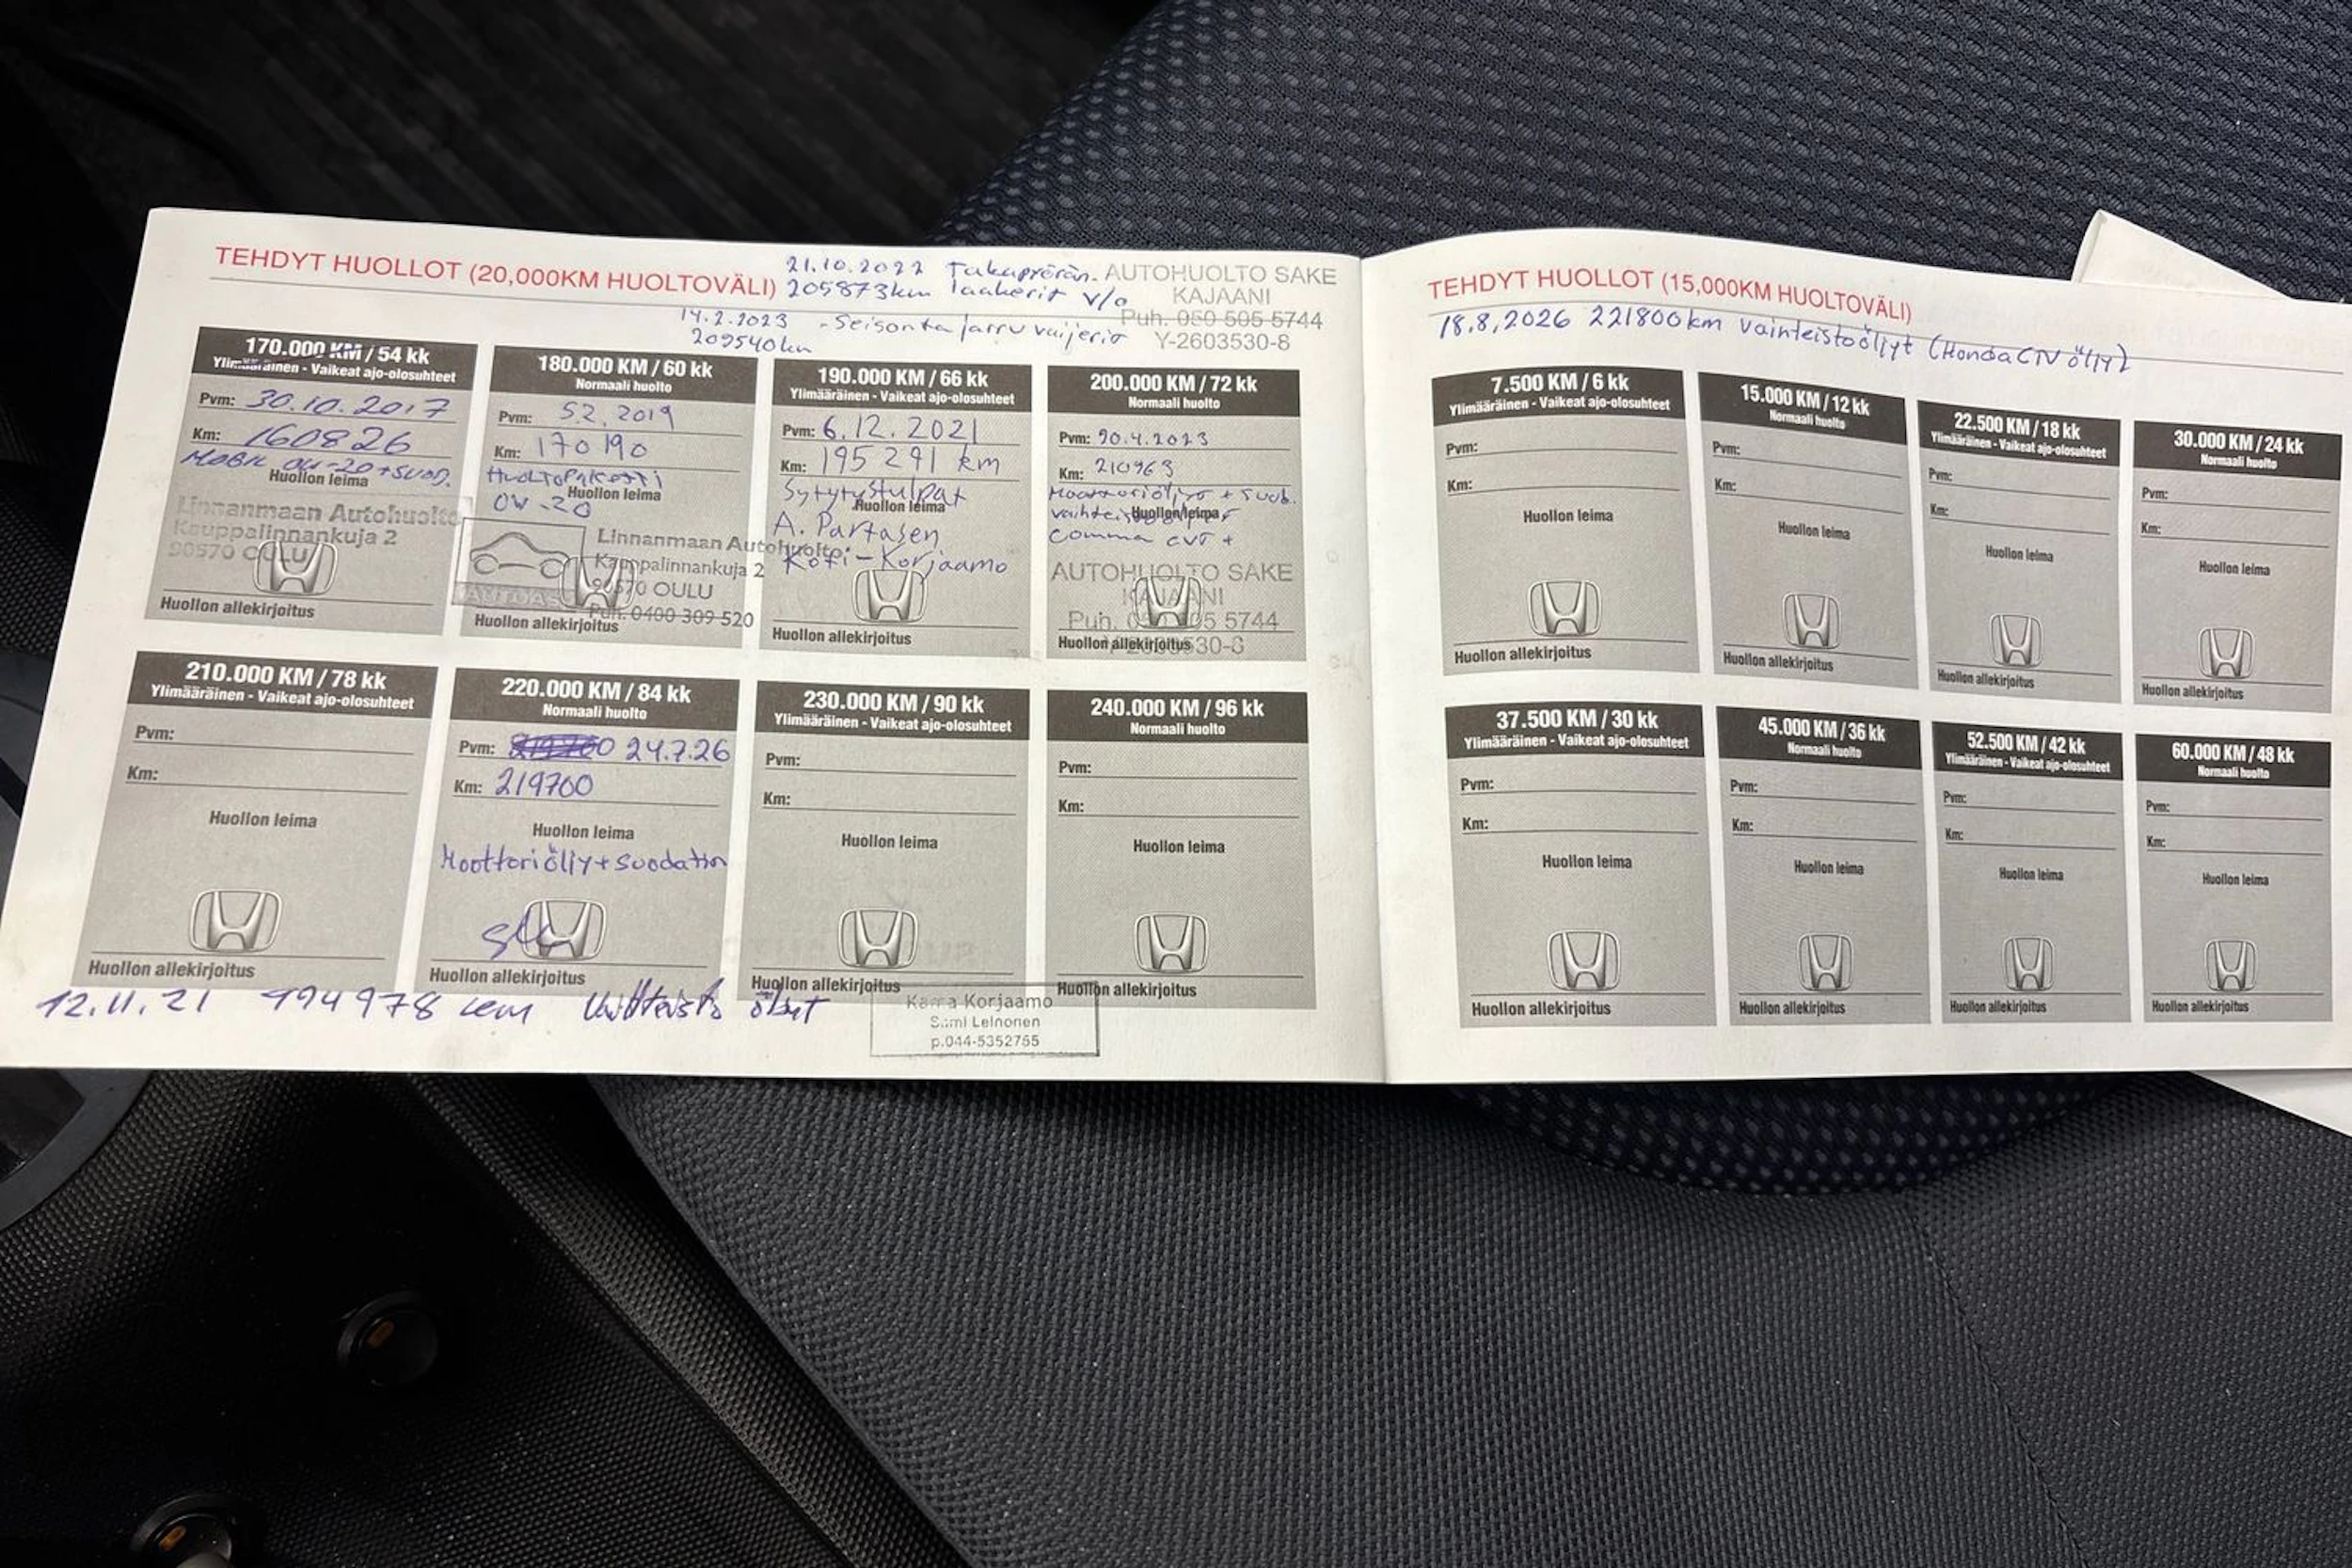 TEHDYT HUOLLOT (20,000KM HUOLTOVÄLI)
21.10.2022 Takapyörän.
205873km laakerit v/o
14.2.2023 - Seisontajarruvaijeria
209540km
AUTOHUOLTO SAKE
KAJAANI
Puh. 050 505 5744
Y-2603530-8
170.000 KM / 54 kk
Ylimääräinen - Vaikeat ajo-olosuhteet
Pvm: 30.10.2017
Km: 160826
MOBIL 0W-20 + SUOD.
Huollon leima
Linnanmaan Autohuolto
Kauppalinnankuja 2
90570 OULU
Huollon allekirjoitus
180.000 KM / 60 kk
Normaali huolto
Pvm: 5.2.2019
Km: 170190
HUOLTOPAKETTI
Huollon leima
0W-20
Linnanmaan Autohuolto
Kauppalinnankuja 2
90570 OULU
Puh. 0400 309 520
Huollon allekirjoitus
190.000 KM / 66 kk
Ylimääräinen - Vaikeat ajo-olosuhteet
Pvm: 6.12.2021
Km: 195291 km
Sytytystulpat
Huollon leima
A. Partasen
Koti-Korjaamo
Huollon allekirjoitus
200.000 KM / 72 kk
Normaali huolto
Pvm: 20.4.2023
Km: 210963
Moottoriöljyt + suod.
Huollon leima
Comma CVT +
AUTOHUOLTO SAKE
KAJAANI
Puh. 050 505 5744
Y-2603530-8
Huollon allekirjoitus
210.000 KM / 78 kk
Ylimääräinen - Vaikeat ajo-olosuhteet
Pvm:
Km:
Huollon leima
Huollon allekirjoitus
220.000 KM / 84 kk
Normaali huolto
Pvm: 24.7.26
Km: 219700
Huollon leima
Moottoriöljy + suodatin
Huollon allekirjoitus
230.000 KM / 90 kk
Ylimääräinen - Vaikeat ajo-olosuhteet
Pvm:
Km:
Huollon leima
Huollon allekirjoitus
240.000 KM / 96 kk
Normaali huolto
Pvm:
Km:
Huollon leima
Huollon allekirjoitus
12.11.21 194978 km Vaihteisto öljyt
Korjaamo
Sami Leinonen
p.044-5352765
TEHDYT HUOLLOT (15,000KM HUOLTOVÄLI)
18.8.2026 221800km Vainteistoöljyt (Honda CTV öljy)
7.500 KM / 6 kk
Ylimääräinen - Vaikeat ajo-olosuhteet
Pvm:
Km:
Huollon leima
Huollon allekirjoitus
15.000 KM / 12 kk
Normaali huolto
Pvm:
Km:
Huollon leima
Huollon allekirjoitus
22.500 KM / 18 kk
Ylimääräinen - Vaikeat ajo-olosuhteet
Pvm:
Km:
Huollon leima
Huollon allekirjoitus
30.000 KM / 24 kk
Normaali huolto
Pvm:
Km:
Huollon leima
Huollon allekirjoitus
37.500 KM / 30 kk
Ylimääräinen - Vaikeat ajo-olosuhteet
Pvm:
Km:
Huollon leima
Huollon allekirjoitus
45.000 KM / 36 kk
Normaali huolto
Pvm:
Km:
Huollon leima
Huollon allekirjoitus
52.500 KM / 42 kk
Ylimääräinen - Vaikeat ajo-olosuhteet
Pvm:
Km:
Huollon leima
Huollon allekirjoitus
60.000 KM / 48 kk
Normaali huolto
Pvm:
Km:
Huollon leima
Huollon allekirjoitus